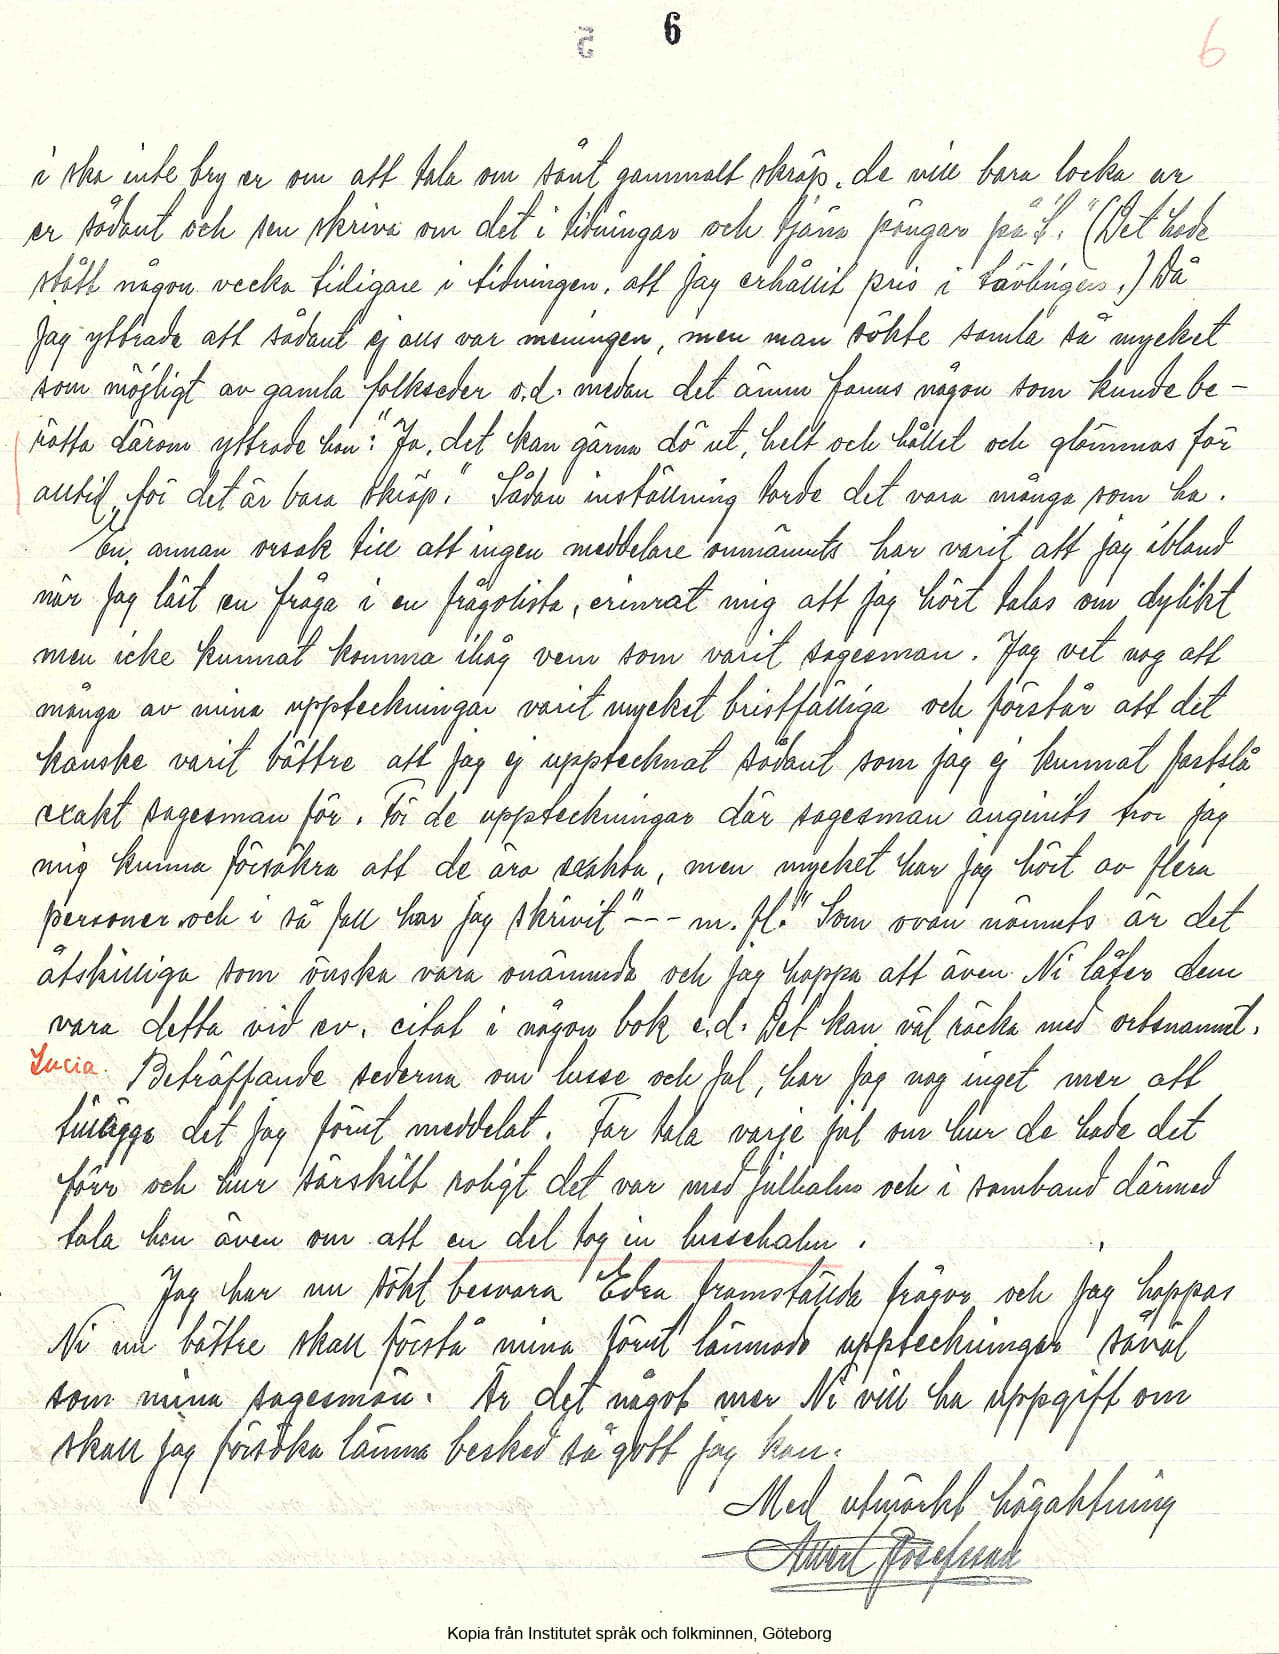 5 6 6
i ska inte bry er om att tala om sånt gammalt skräp, de vill bara locka ur
er sådant och sen skriva om det i tidningar och tjäna pängar på'£." (Det hade
stått någon vecka tidigare i tidningen, att jag erhållit pris i tävlingen.) Då
jag yttrade att sådant ej alls var meningen, men man sökte samla så mycket
som möjligt av gamla folkseder o.d. medan det ännu fanns någon som kunde be-
rätta därom yttrade han: "Ja, det kan gärna dö ut, helt och hållet och glömmas för
alltid, för det är bara skräp." Sådan inställning torde det vara många som ha.
En annan orsak till att ingen meddelare omnämnts har varit att jag ibland
när jag läst en fråga i en frågolista, erinrat mig att jag hört talas om dylikt
men icke kunnat komma ihåg vem som varit sagesman. Jag vet nog att
många av mina uppteckningar varit mycket bristfälliga och förstår att det
kanske varit bättre att jag ej upptecknat sådant som jag ej kunnat fastslå
exakt sagesman för. För de uppteckningar där sagesman angivits tror jag
mig kunna försäkra att de äro exakta, men mycket har jag hört av flera
personer och i så fall har jag skrivit "--- m. fl." Som ovan nämnts är det
åtskilliga som önska vara onämnda och jag hoppa att även Ni låter dem
vara detta vid ev. citat i någon bok e.d. Det kan väl räcka med ortsnamnet.
Lucia. Beträffande sederna om lusse och jul, har jag nog inget mer att
tillägga det jag förut meddelat. Far tala varje jul om hur de hade det
förr och hur särskilt roligt det var med julhalm och i samband därmed
tala han även om att en del tog in lussehalm.
Jag har nu sökt besvara Edra framställda frågor och jag hoppas
Ni nu bättre skall förstå mina förut lämnade uppteckningar såväl
som mina sagesmän. Är det något mer Ni vill ha uppgift om
skall jag försöka lämna besked så gott jag kan.
Med utmärkt högaktning
Albert Josefsson
Kopia från Institutet språk och folkminnen, Göteborg